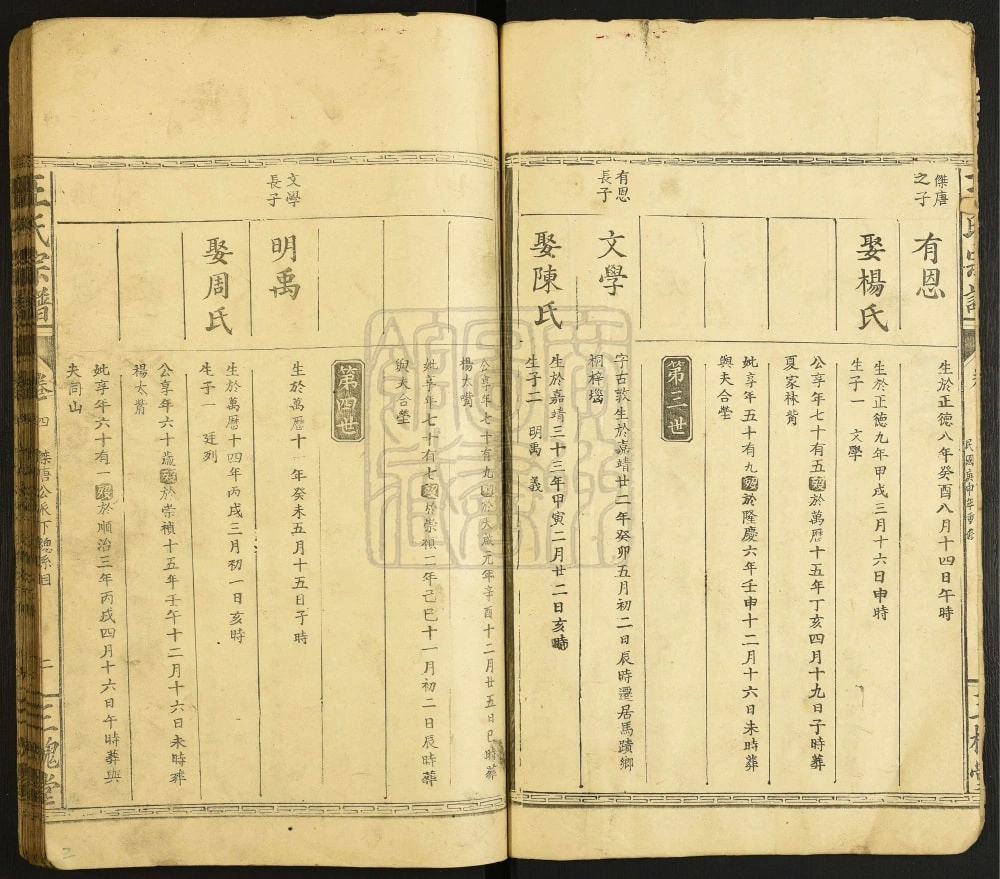 傑唐
之子
有恩
生於正德八年癸酉八月十四日午時
娶楊氏
生於正德九年甲戌三月十六日申時
生子一 文學
公享年七十有五歿於萬曆十五年丁亥四月十九日子時葬
夏家林嘴
妣享年五十有九歿於隆慶六年壬申十二月十六日未時葬
與夫合塋
第三世
有恩
長子
文學
字古敦生於嘉靖廿二年癸卯五月初二日辰時遷居馬蹟鄉
桐梓堖
娶陳氏
生於嘉靖三十三年甲寅二月廿二日亥時
生子二 明禹 義
公享年七十有九歿於天啟元年辛酉十二月廿五日巳時葬
楊太嘴
妣享年七十有七歿於崇禎二年己巳十一月初二日辰時葬
與夫合塋
第四世
文學
長子
明禹
生於萬曆十一年癸未五月十五日子時
娶周氏
生於萬曆十四年丙戌三月初一日亥時
生子一 廷列
公享年六十歲歿於崇禎十五年壬午十二月十六日未時葬
楊太嘴
妣享年六十有一歿於順治三年丙戌四月十六日午時葬與
夫同山
王氏宗譜
卷四
傑唐公派下總系圖
二
三槐堂